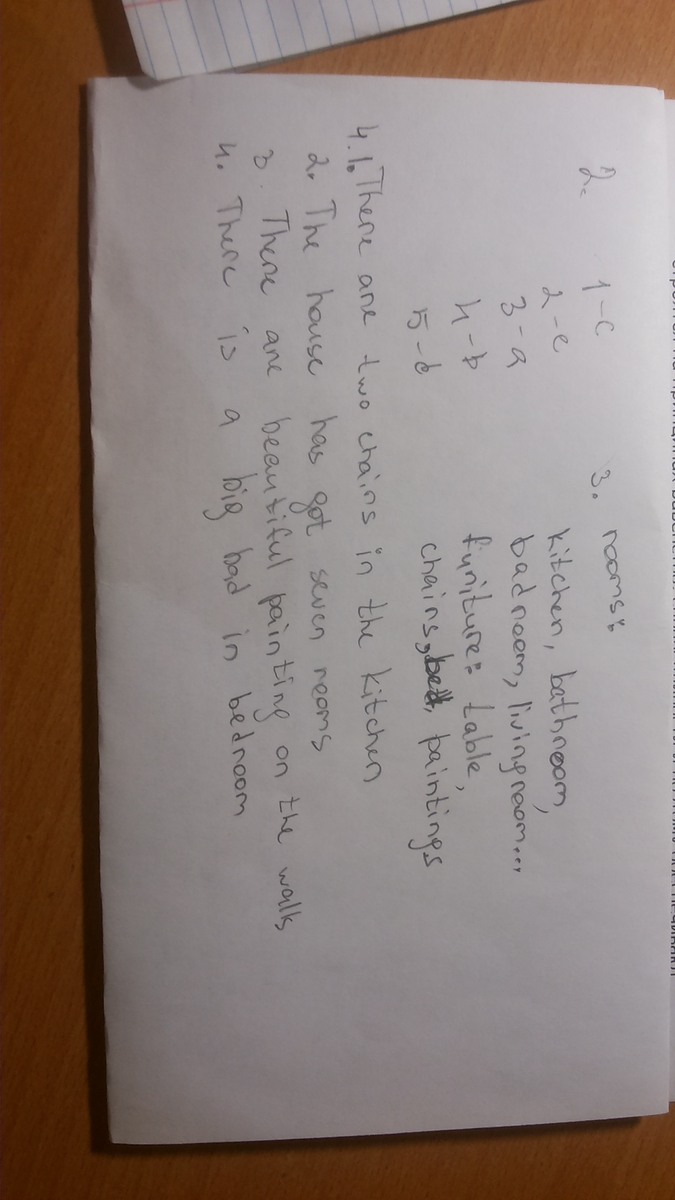 2.
1-c
2-e
3-a
4-b
5-d
3. rooms:
kitchen, bathroom,
badroom, livingroom...
funiture: table,
chairs, bed, paintings
4. 1. There are two chairs in the kitchen
2. The house has got seven rooms
3. There are beautiful painting on the walls
4. There is a big bad in bedroom